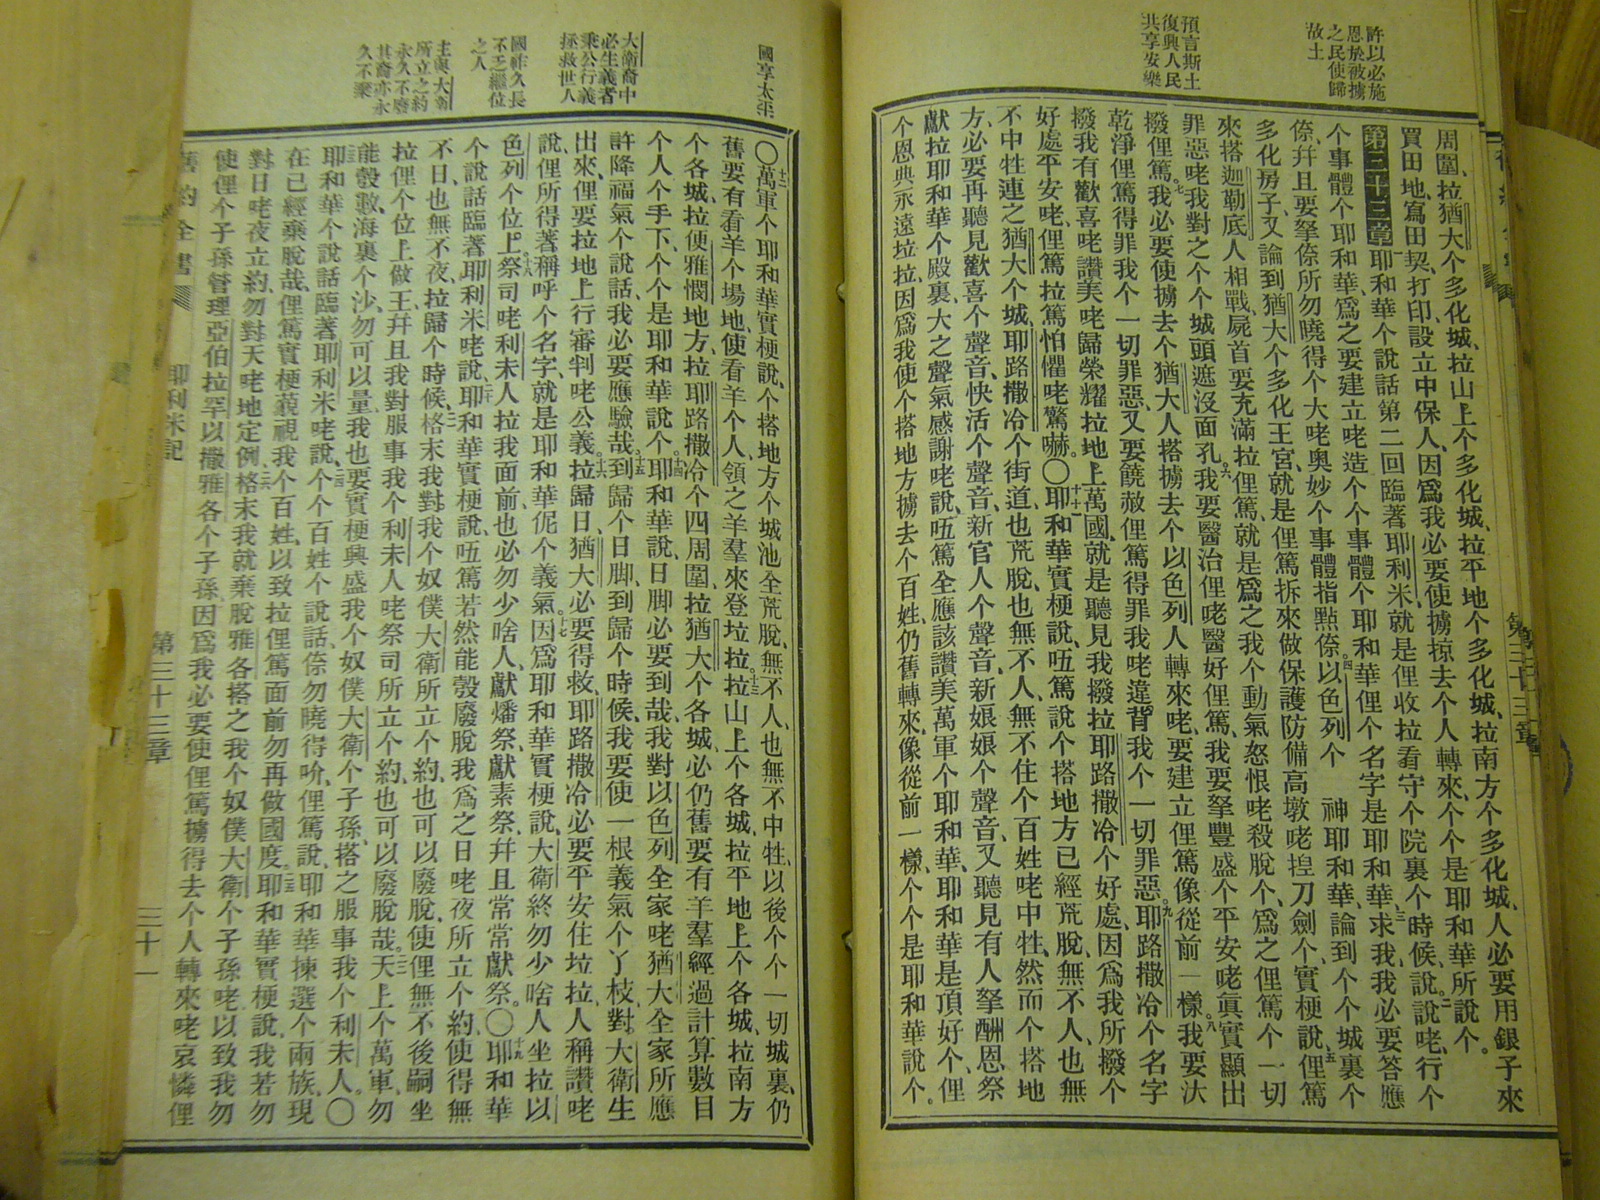 許以必施
恩於被擄
之民使歸
故土
預言斯土
復興人民
共享安樂
周圍、拉猶大个多化城、拉山上个多化城、拉平地个多化城、拉南方个多化城、人必要用銀子來
買田地、寫田契、打印、設立中保人、因爲我必要使擄掠去个人轉來、个个是耶和華所說个。
第三十三章 耶和華个說話第二回臨著耶利米、就是俚收拉看守个院裏个時候、說、二說咾行个
个事體个耶和華、爲之要建立咾造个个事體个耶和華、俚个名字是耶和華、三求我、我必要答應
㑚、幷且要拏㑚所勿曉得个大咾奧妙个事體指點㑚、四以色列个 神耶和華論到个个城裏个
多化房子、又論到猶大个多化王宮、就是俚篤拆來做保護防備高墩咾揑刀劍个、實梗說、五俚篤
來搭迦勒底人相戰、屍首要充滿拉俚篤、就是爲之我个動氣怒恨咾殺脫个、爲之俚篤个一切
罪惡咾我對之个个城頭遮沒面孔、六我要醫治俚咾醫好俚篤、我要拏豐盛个平安咾眞實顯出
撥俚篤。七我必要使擄去个猶大人搭擄去个以色列人轉來咾、要建立俚篤像從前一樣。八我要汏
乾淨俚篤得罪我个一切罪惡、又要饒赦俚篤得罪我咾違背我个一切罪惡。九耶路撒冷个名字
撥我有歡喜咾讚美咾歸榮耀拉地上萬國、就是聽見我撥拉耶路撒冷个好處、因爲我所撥个
好處平安咾、俚篤拉篤怕懼咾驚嚇。〇十耶和華實梗說、㕶篤說个搭地方已經荒脫、無不人、也無
不中牲、連之猶大个城、耶路撒冷个街道、也荒脫、也無不人、無不住个百姓咾中牲、然而个搭地
方、必要再聽見歡喜个聲音、快活个聲音、新官人个聲音、新娘娘个聲音、又聽見有人拏酬恩祭
獻拉耶和華个殿裏、大之聲氣感謝咾說、㕶篤全應該讚美萬軍个耶和華、耶和華是頂好个、俚
个恩典永遠垃拉、因爲我使个搭地方擄去个百姓、仍舊轉來、像從前一樣、个个是耶和華說个。
國享太平
大衛裔中
必生義者
秉公行義
拯救世人
國祚久長
不乏繼位
之人
主與大衛
所立之約
永久不廢
其裔亦永
久不棄
〇十二萬軍个耶和華實梗說、个搭地方个城池全荒脫、無不人、也無不中牲、以後个个一切城裏、仍
舊要有看羊个場地、使看羊个人、領之羊羣來登垃拉。十三拉山上个各城、拉平地上个各城、拉南方
个各城、拉便雅憫地方、拉耶路撒冷个四周圍、拉猶大个各城、必仍舊要有羊羣經過計算數目
个人个手下、个个是耶和華說个。十四耶和華說、日脚必要到哉、我對以色列全家咾猶大全家所應
許降福氣个說話、我必要應驗哉。十五到歸个日脚、到歸个時候、我要使一根義氣个丫枝、對大衛生
出來、俚要拉地上行審判咾公義。十六拉歸日、猶大必要得救、耶路撒冷必要平安住垃拉、人稱讚咾
說、俚所得著稱呼个名字、就是耶和華伲个義氣。十七因爲耶和華實梗說、大衛終勿少啥人坐拉以
色列个位上。十八祭司咾利未人拉我面前、也必勿少啥人、獻燔祭、獻素祭、幷且常常獻祭。〇十九耶和華
个說話臨著耶利米咾說、二十耶和華實梗說、㕶篤若然能彀廢脫我爲之日咾夜所立个約、使得無
不日、也無不夜、拉歸个時候、格末我對我个奴僕大衛所立个約、也可以廢脫、使俚無不後嗣坐
拉俚个位上做王、幷且我對服事我个利未人咾祭司所立个約、也可以廢脫哉。天上个萬軍、勿
能彀數、海裏个沙、勿可以量、我也要實梗興盛我个奴僕大衛个子孫、搭之服事我个利未人。〇
耶和華个說話臨著耶利米咾說、二四个个百姓个說話、㑚勿曉得吩、俚篤說、耶和華揀選个兩族、現
在已經棄脫哉、俚篤實梗藐視我个百姓、以致拉俚篤面前勿再做國度。耶和華實梗說、我若勿
對日咾夜立約、勿對天咾地定例、格末我就棄脫雅各搭之我个奴僕大衛个子孫咾、以致我勿
使俚个子孫管理亞伯拉罕以撒雅各个子孫、因爲我必要使俚篤擄得去个人轉來咾哀憐俚
舊約全書 耶利米記 第三十三章 三十一